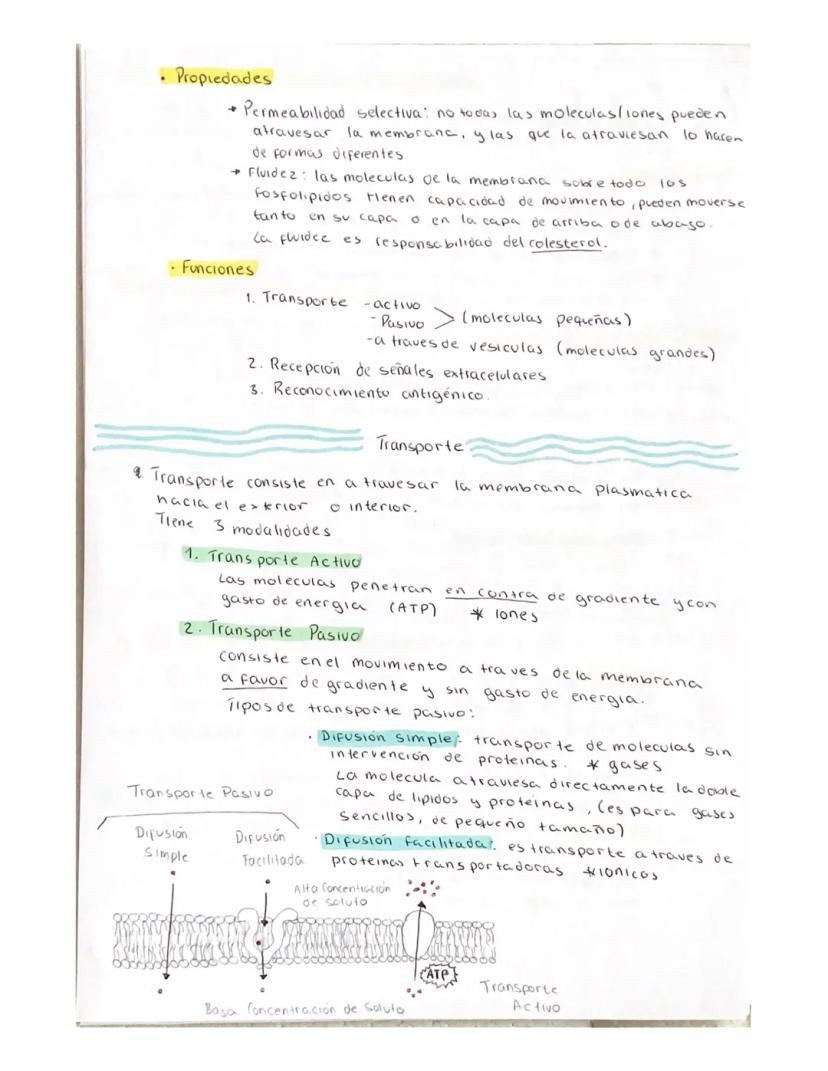 • Propiedades
→ Permeabilidad selectiva: no todas las moleculas/iones pueden
atravesar la membrana, y las que la atraviesan lo hacen
de formas diferentes
→ Fluidez: las moleculas de la membrana sobre todo los
fosfolipidos tienen capacidad de movimiento, pueden moverse
tanto en su capa o en la capa de arriba o de abajo.
La fluidez es responsabilidad del colesterol.
• Funciones
1. Transporte -activo
-Pasivo > (moleculas pequeñas)
-a traves de vesiculas (moleculas grandes)
2. Recepción de señales extracelulares
3. Reconocimiento antigénico.
Transporte
Transporte consiste en atravesar la membrana plasmatica
hacia el exterior o interior.
Tiene 3 modalidades
1. Transporte Activo
Las moleculas penetran en contra de gradiente y con
gasto de energia (ATP) * Iones
2. Transporte Pasivo
consiste en el movimiento a traves de la membrana
a favor de gradiente y sin gasto de energia.
Tipos de transporte pasivo:
• Difusión simple: transporte de moleculas sin
intervención de proteinas. * gases
La molecula atraviesa directamente la doble
capa de lipidos y proteinas, (es para gases
sencillos, de pequeño tamaño)
• Difusión facilitada: es transporte a traves de
proteinas transportadoras *ionicos
Transporte Pasivo
Difusión
Simple
Difusión
Facilitada
Alta Concentración
de soluto
ATP
Transporte
Activo
Baja Concentración de Soluto